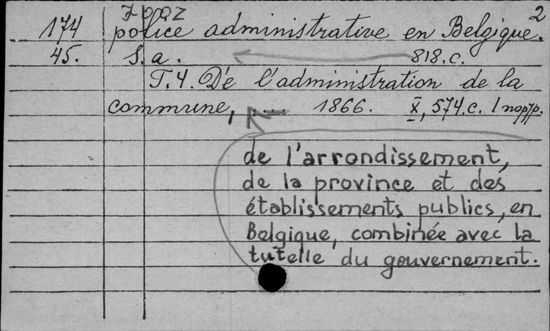 174 police administrative en Belgique. 2
45. S.a. 818.c.
T.4. De l'administration de la
commune, 1866. X, 574.c. 1 портр.
de l'arrondissement,
de la province et des
établissements publics, en
Belgique, combinée avec la
tutelle du gouvernement.